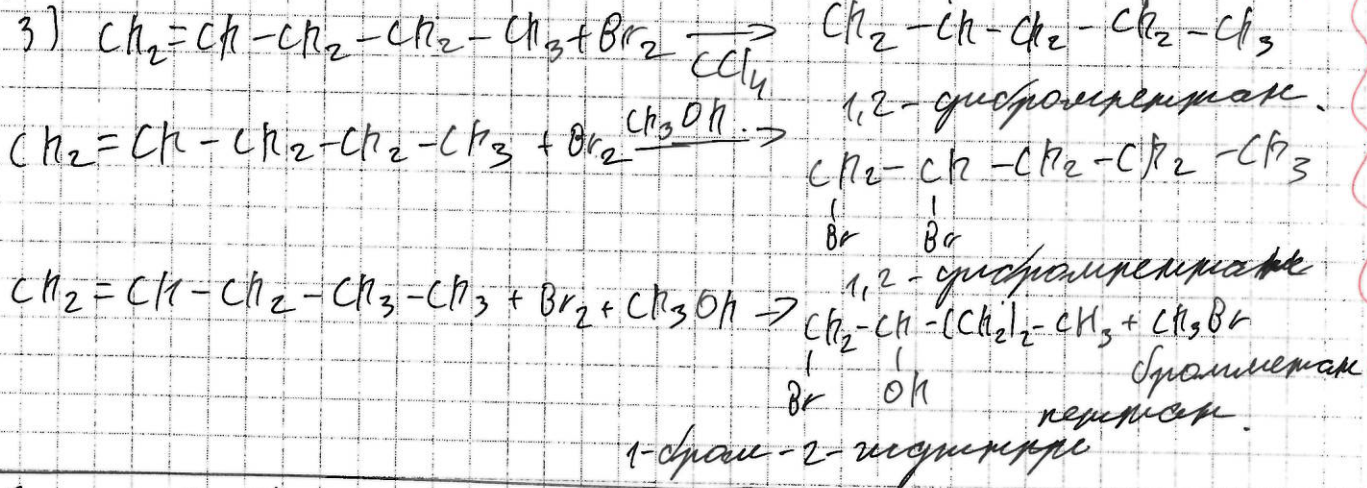 3) CH₂=CH-CH₂-CH₂-CH₃+Br₂ →(CCl₄) CH₂-CH-CH₂-CH₂-CH₃
1,2-дибромпентан.
CH₂=CH-CH₂-CH₂-CH₃ + Br₂ →(CH₃OH.) CH₂-CH-CH₂-CH₂-CH₃
Br Br
1,2-дибромпентан
CH₂=CH-CH₂-CH₃-CH₃ + Br₂ + CH₃OH → CH₂-CH-(CH₂)₂-CH₃ + CH₃Br
Br OH
бромметан
1-бром-2- пентан.